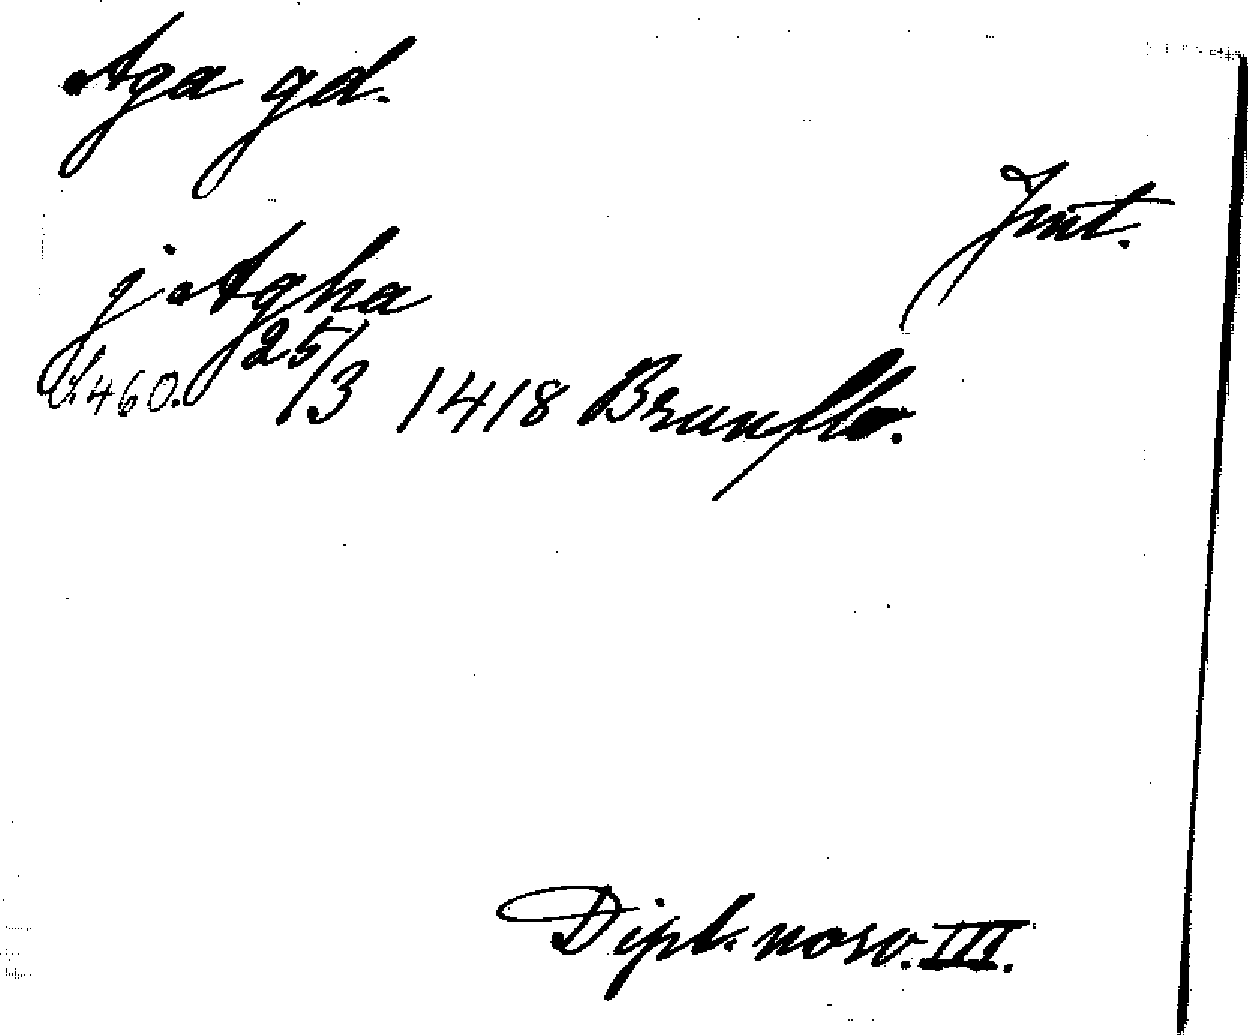 Aga gd.
Jmt.
j Agha
S. 460. 25/3 1418 Brunflo.
Dipl. norv. III.